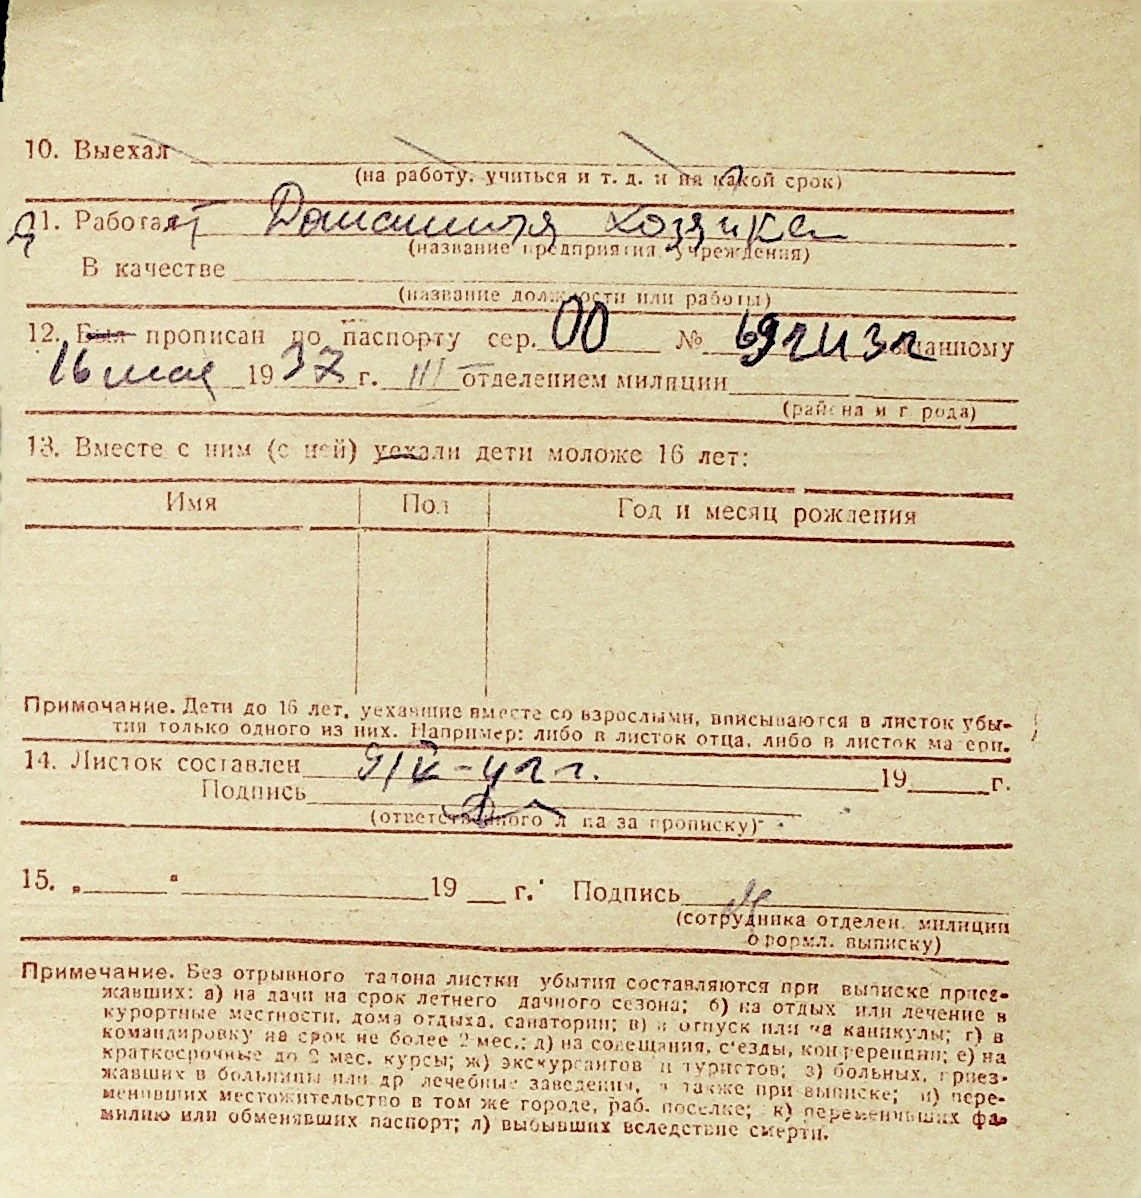 10. Выехал
(на работу, учиться и т. д. и на какой срок)
11. Работает Домашняя хозяйка
(название предприятия, учреждения)
В качестве
(название должности или работы)
12. Был прописан по паспорту сер. 00 № выданному
16 мая 1937 г. III отделением милиции
(района и города)
13. Вместе с ним (с ней) уехали дети моложе 16 лет:
Имя Пол Год и месяц рождения
Примечание. Дети до 16 лет, уехавшие вместе со взрослыми, вписываются в листок убы-
тия только одного из них. Например: либо в листок отца, либо в листок матери.
14. Листок составлен 19 г.
Подпись
(ответственного лица за прописку)
15. „ “ 19 г. Подпись
(сотрудника отделен. милиции
оформл. выписку)
Примечание. Без отрывного талона листки убытия составляются при выписке приез-
жавших: а) на дачи на срок летнего дачного сезона; б) на отдых или лечение в
курортные местности, дома отдыха, санатории; в) в отпуск или на каникулы; г) в
командировку на срок не более 2 мес.; д) на совещания, с'езды, конференции; е) на
краткосрочные до 2 мес. курсы; ж) экскурсантов и туристов; з) больных, приез-
жавших в больницы или др лечебные заведения, а также при выписке; и) пере-
менивших местожительство в том же городе, раб. поселке; к) переменивших фа-
милию или обменявших паспорт; л) выбывших вследствие смерти.